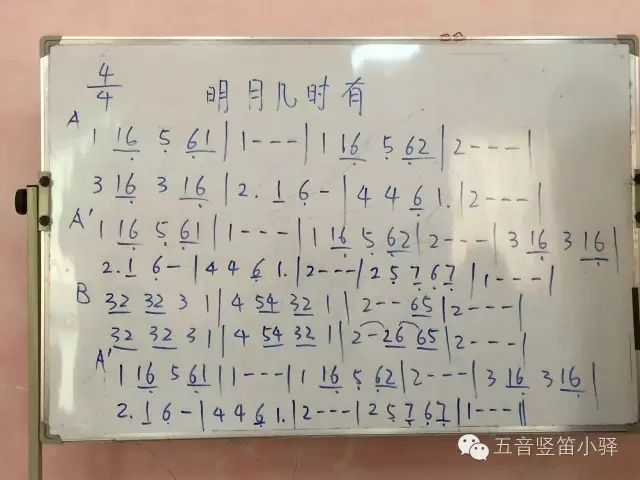 4/4 明月几时有
A
1 16 5 61 | 1 - - - | 1 16 5 62 | 2 - - - |
3 16 3 16 | 2. 1 6 - | 4 4 6 1. | 2 - - - |
A' 1 16 5 61 | 1 - - - | 1 16 5 62 | 2 - - - | 3 16 3 16 |
2. 1 6 - | 4 4 6 1. | 2 - - - | 2 5 7 6 7 | 1 - - - |
B 32 32 3 1 | 4 54 32 1 | 2 - - 65 | 2 - - - |
32 32 3 1 | 4 54 32 1 | 2 - 26 65 | 2 - - - |
A'
1 16 5 61 | 1 - - - | 1 16 5 62 | 2 - - - | 3 16 3 16 |
2. 1 6 - | 4 4 6 1. | 2 - - - | 2 5 7 67 | 1 - - - ||
五音竖笛小驿